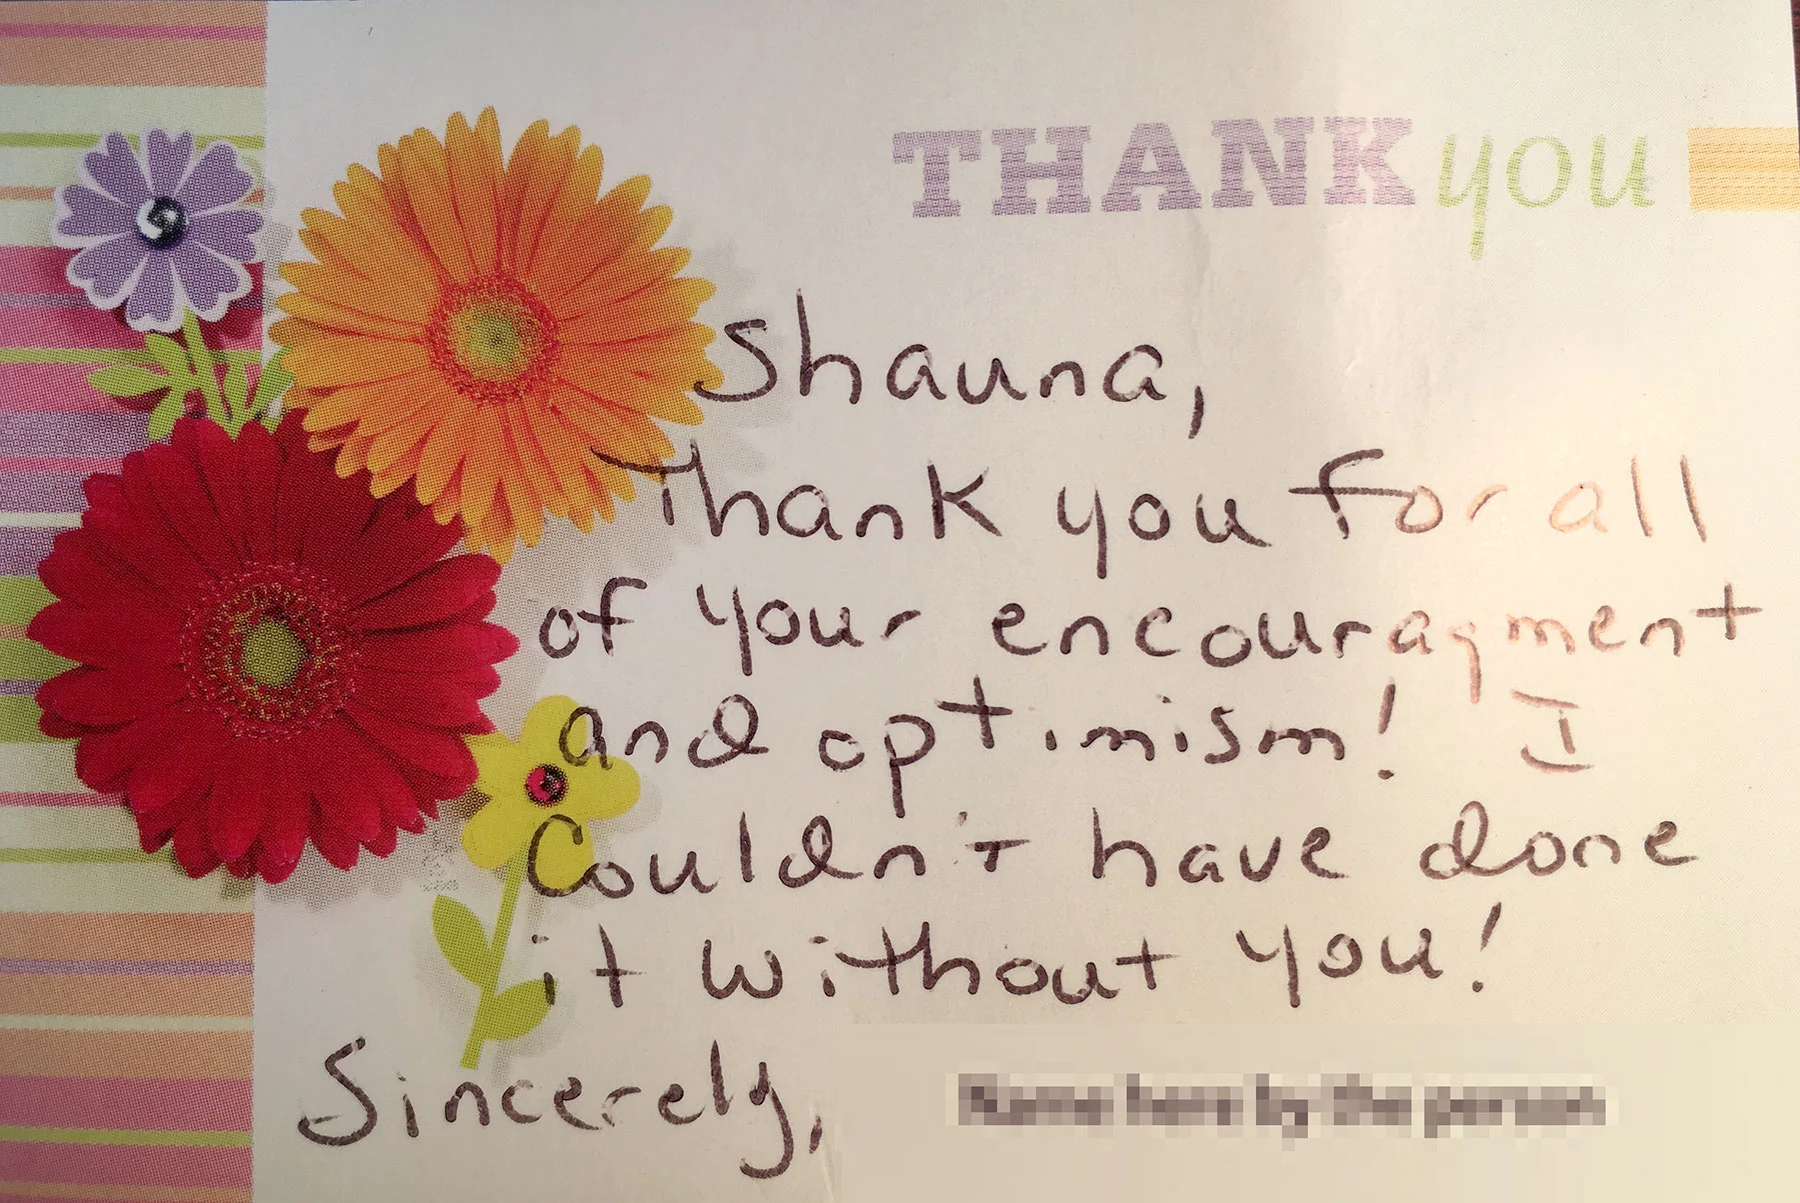 THANK you
Shauna,
Thank you for all
of your encouragment
and optimism! I
Couldn't have done
it without you!
Sincerely,